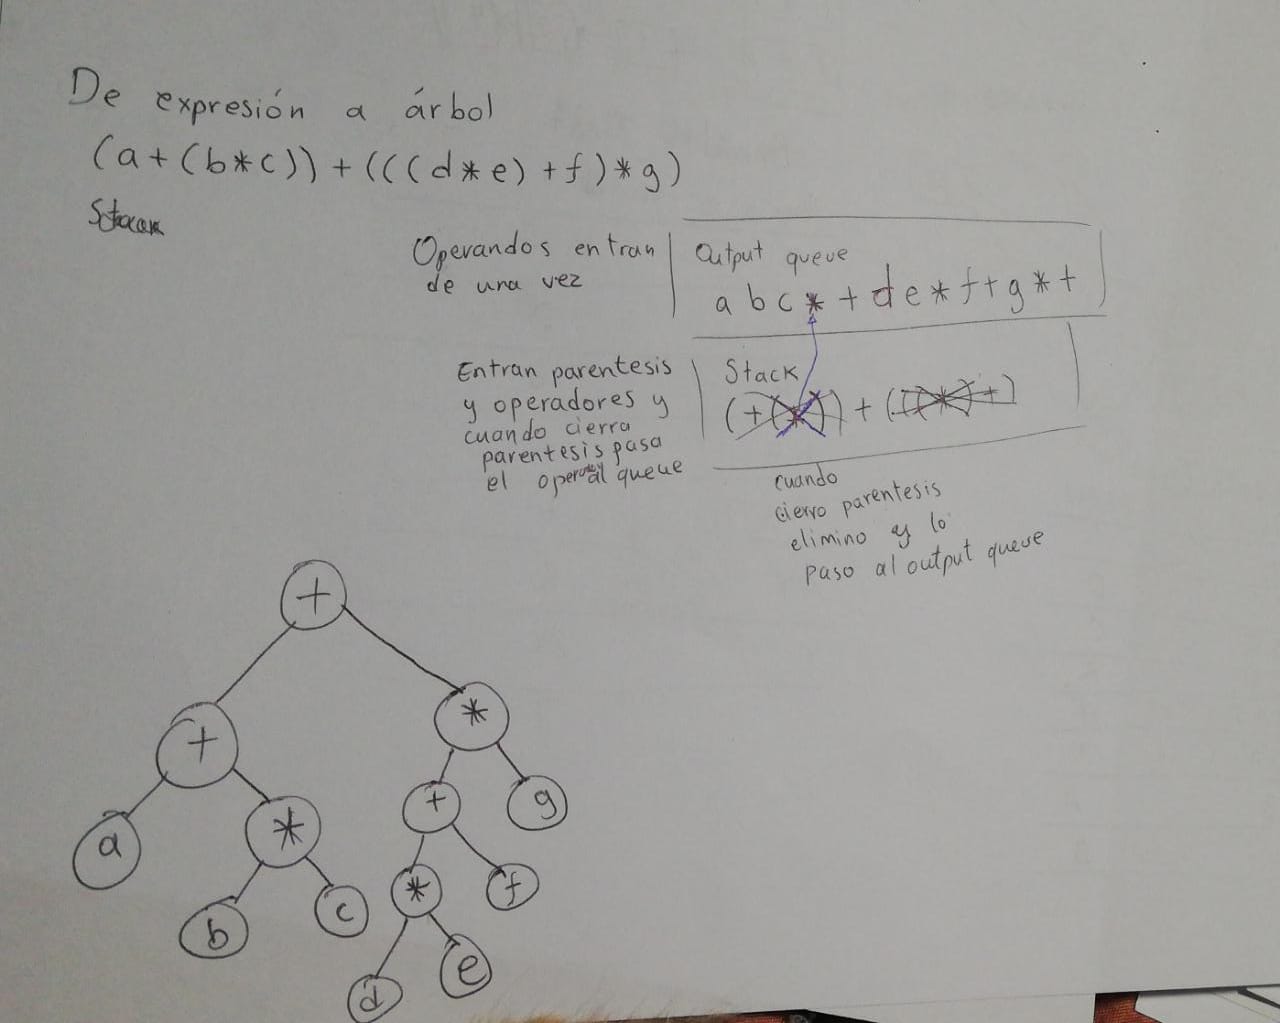 De expresión a árbol
(a+(b*c))+(((d*e)+f)*g)
Operandos entran
de una vez
Output queue
a b c * + d e * f + g * +
Entran parentesis
y operadores y
cuando cierra
parentesis pasa
el al queue
Stack
(+(*))+(((*)+)
cuando
cierro parentesis
elimino y lo
paso al output queue
+
+ *
a * + g
b c * f
d e